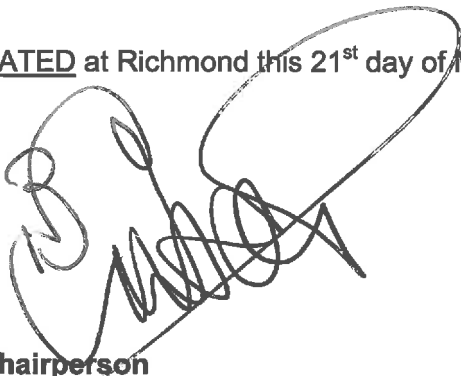 ATED at Richmond this 21st day of
hairperson